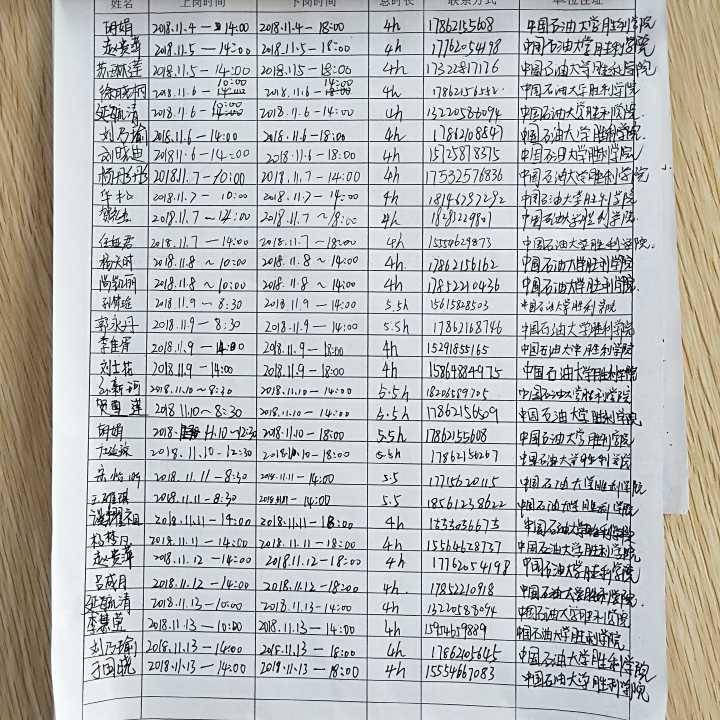 姓名 上岗时间 下岗时间 总时长 联系方式 单位住址
胡娟 2018.11.4—14:00 2018.11.4—18:00 4h 17862155608 中国石油大学胜利学院
赵贵萍 2018.11.5—14:00 2018.11.5—18:00 4h 17762054198 中国石油大学胜利学院
2018.11.5—14:00 2018.11.5—18:00 4h 17322817176 中国石油大学胜利学院
徐晓桐 2018.11.6—10:00 2018.11.6—14:00 4h 中国石油大学胜利学院
延毓清 2018.11.6—10:00 2018.11.6—14:00 4h 13220588094 中国石油大学胜利学院.
刘乃瑜 2018.11.6—14:00 2018.11.6—18:00 4h 17862108847 中国石油大学胜利学院.
刘晓迪 2018.11.6—14:00 2018.11.6—18:00 4h 15725878375 中国石油大学胜利学院
杨彤彤 2018.11.7—10:00 2018.11.7—14:00 4h 17532576836 中国石油大学胜利学院
2018.11.7—10:00 2018.11.7—14:00 4h 中国石油大学胜利学院
2018.11.7—14:00 2018.11.7~18:00 4h 中国石油大学胜利学院
任益君 2018.11.7—14:00 2018.11.7—18:00 4h 15554629873 中国石油大学胜利学院.
杨天时 2018.11.8~10:00 2018.11.8~14:00 4h. 17862156162 中国石油大学胜利学院
尚凯丽 2018.11.8~10:00 2018.11.8~14:00 4h 17852210436 中国石油大学胜利学院
2018.11.9—8:30 2018.11.9—14:00 5.5h 15615828503 中国石油大学胜利学院
郭永丹 2018.11.9—8:30 2018.11.9—14:00 5.5h 17862168746 中国石油大学胜利学院
李佳霄 2018.11.9—14:00 2018.11.9—18:00 4h 15291855165 中国石油大学胜利学院
刘士花 2018.11.9—14:00 2018.11.9—18:00 4h 15864884975 中国石油大学胜利学院
2018.11.10~8:30 2018.11.10—14:00 5.5h 18206589705 中国石油大学胜利学院
2018.11.10~8:30 2018.11.10—14:00 5.5h 17862156509 中国石油大学胜利学院
胡娟 2018.11.10—12:30 2018.11.10—18:00 5.5h 17862155608 中国石油大学胜利学院
2018.11.10—12:30 2018.11.10—18:00 5.5h 17862156267 中国石油大学胜利学院
2018.11.11—8:30 2018.11.11—14:00 5.5 17715620115 中国石油大学胜利学院
王雅琪 2018.11.11—8:30 2018.11.11—14:00 5.5 18561238622 中国石油大学胜利学院
2018.11.11—14:00 2018.11.11—18:00 4h 中国石油大学胜利学院
2018.11.11—14:00 2018.11.11—18:00 4h 15564628737 中国石油大学胜利学院
赵贵萍 2018.11.12—14:00 2018.11.12—18:00 4h 17762054198 中国石油大学胜利学院
吕成月 2018.11.12—14:00 2018.11.12—18:00 4h. 17852210918 中国石油大学胜利学院
延毓清 2018.11.13—10:00 2018.11.13—14:00 4h 13220588094 中国石油大学胜利学院
李慧莹 2018.11.13—10:00 2018.11.13—14:00 4h 15954659889 中国石油大学胜利学院
刘乃瑜 2018.11.13—14:00 2018.11.13—18:00 4h 17862105645 中国石油大学胜利学院
于国晓 2018.11.13—14:00 2018.11.13—18:00 4h 15554667083 中国石油大学胜利学院